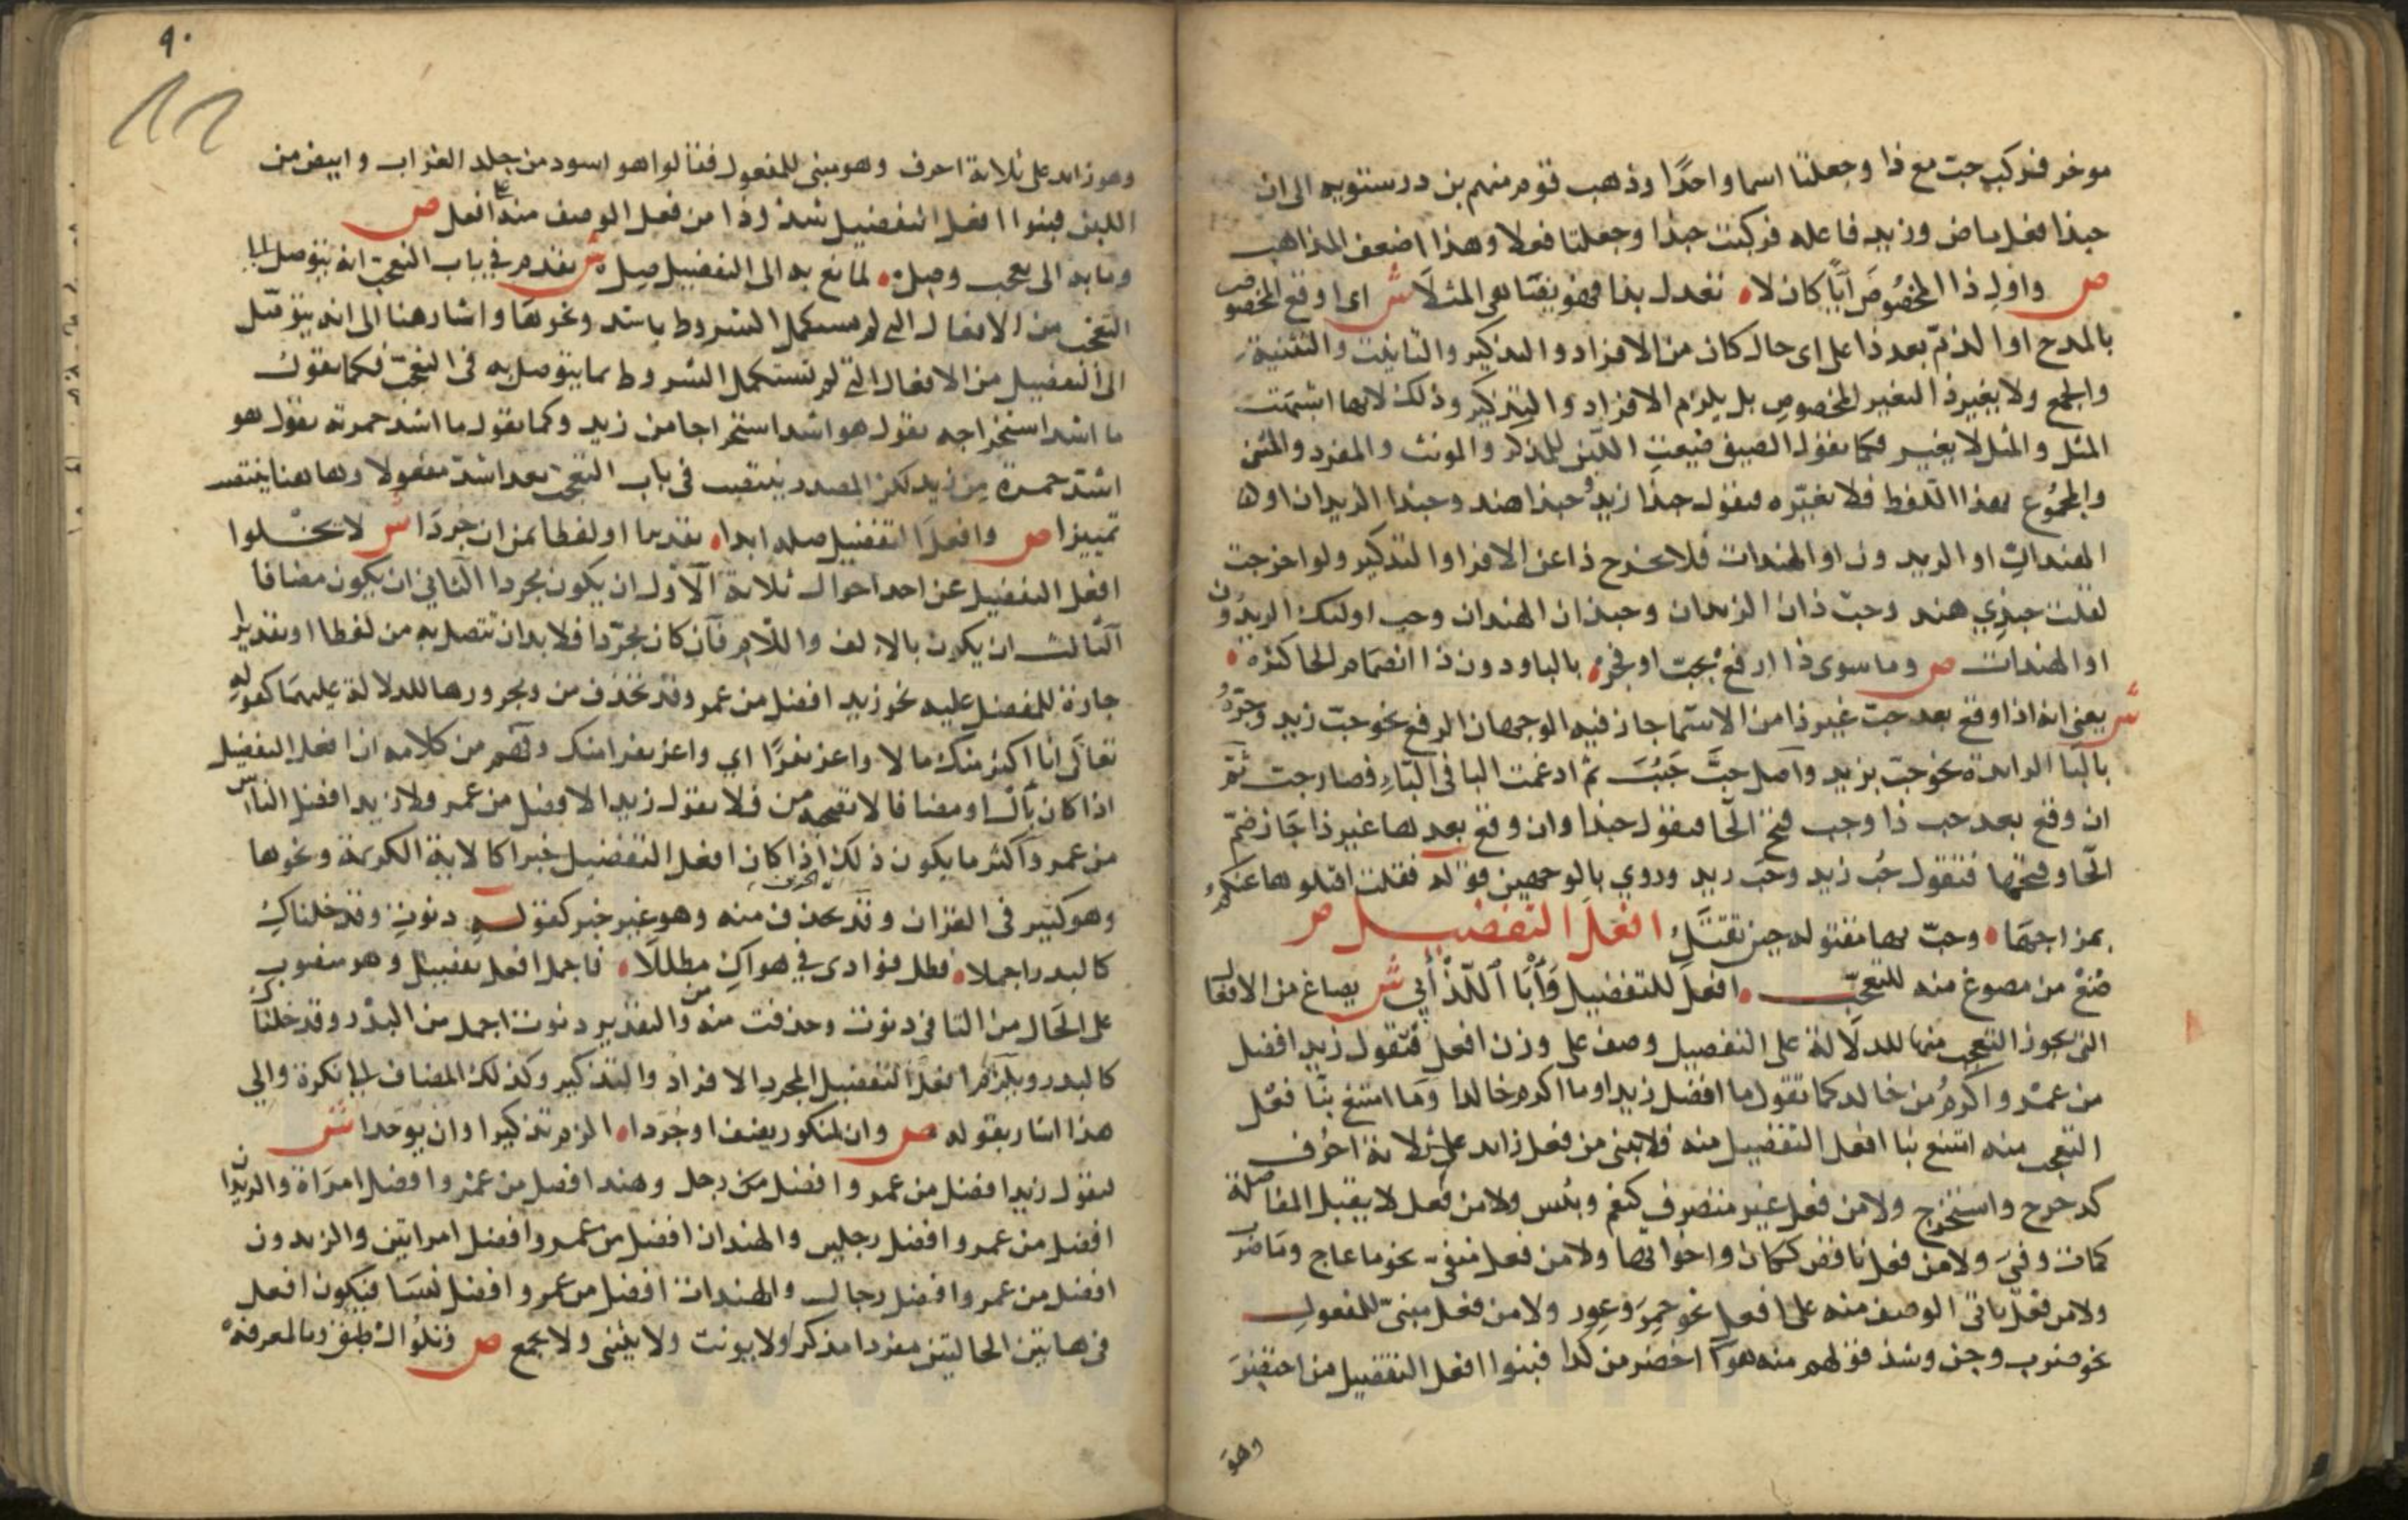 موخر فركب حب مع ذا وجعلتا اسما واحدًا وذهب قوم منهم بن درستويه الى ان
حبذا فعل ماض وزيد فاعله فركبت حبذا وجعلتا فعلا وهذا اضعف المذاهب
ص واول ذا المخصوص ايًّا كان لا تعدل بذا فهو يضاهي المثلا ش اى اوقع المخصوص
بالمدح او الذم بعد ذا على اى حال كان من الافراد والتذكير والتانيث والتثنية
والجمع ولا يغير ذا لتغير المخصوص بل يلزم الافراد والتذكير وذلك لانها اشبهت
المثل والمثل لا يغير فكما تقول الصيف ضيعت اللبن للمذكر والمونث والمفرد والمثنى
والمجموع بهذا اللفظ فلا تغيره فتقول حبذا زيد وحبذا هند وحبذا الزيدان او
الهندات او الزيدون او الهندات فلا يخرج ذا عن الافراد والتذكير ولو اخرجت
لقلت حبذي هند وحب ذان الزيدان وحبذان الهندان وحب اولئك الزيدون
او الهندات ص وما سوى ذا ارفع بحب او فجر بالبا ودون ذا انضمام الحا كثر
ش يعنى انه اذا وقع بعد حب غير ذا من الاسما جاز فيه الوجهان الرفع نحو حب زيد وجره
بالبا الزايدة نحو حب بزيد واصل حب حبب ثم ادغمت البا فى الباء فصار حب ثم
ان وقع بعد حب ذا وجب فتح الحا فتقول حبذا وان وقع بعدها غير ذا جاز ضم
الحا وفتحها فتقول حب زيد وحب زيد وروي بالوجهين قوله فقلت اقتلوها عنكم
بمزاجها وحب بها مقتولة حين تقتل افعل التفضيل ص
صغ من مصوغ منه للتعجب افعل للتفضيل وأب اللذ أبي ش يصاغ من الافعال
التى يجوز التعجب منها للدلالة على التفضيل وصف على وزن افعل فتقول زيد افضل
من عمرو واكرم من خالد كما تقول ما افضل زيدا وما اكرم خالدا وما امتنع بنا فعل
التعجب منه امتنع بنا افعل التفضيل منه فلا يبنى من فعل زايد على ثلاثة احرف
كدحرج واستخرج ولا من فعل غير متصرف كنعم وبئس ولا من فعل لا يقبل المفاضلة
كمات وفني ولا من فعل ناقص ككان واخواتها ولا من فعل منفى نحو ما عاج وما ضرب
ولا من فعل ياتى الوصف منه على افعل نحو حمر وعور ولا من فعل مبنى للمفعول
نحو ضرب وجن وشذ قولهم منه هو اخصر من كذا فبنوا افعل التفضيل من اختصر
وهو
٩٠
وهو زايد على ثلاثة احرف وهو مبنى للمفعول فقالوا هو اسود من جلد الغراب وابيض من
اللبن فبنوا افعل التفضيل شذوذا من فعل الوصف منه على افعل ص
وما به الى تعجب وصل لمانع به الى التفضيل صل ش تقدم في باب التعجب انه يتوصل الى
التعجب من الافعال التى لم تستكمل الشروط باشد ونحوها واشار هنا الى انه يتوصل
الى التفضيل من الافعال التى لم تستكمل الشروط بما يتوصل به فى التعجب فكما تقول
ما اشد استخراجه تقول هو اشد استخراجا من زيد وكما تقول ما اشد حمرته تقول هو
اشد حمرة من زيد لكن المصدر ينتصب فى باب التعجب بعد اشد مفعولا وهاهنا ينتصب
تمييزا ص وافعل التفضيل صله ابدا تقديرا او لفظا بمن ان جردا ش لا يخلوا
افعل التفضيل عن احد احوال ثلاثة الاول ان يكون مجردا الثاني ان يكون مضافا
الثالث ان يكون بالالف واللام فان كان مجردا فلا بد ان تتصل به من لفظا او تقديرا
جارة للمفضل عليه نحو زيد افضل من عمرو وقد تحذف من ومجرورها للدلالة عليهما كقوله
تعالى انا اكثر منك مالا واعز نفرًا اي واعز نفرا منك وفهم من كلامه ان افعل التفضيل
اذا كان بأل او مضافا لا تصحبه من فلا تقول زيد الافضل من عمرو ولا زيد افضل الناس
من عمرو واكثر ما يكون ذلك اذا كان افعل التفضيل خبرا كالاية الكريمة ونحوها
وهو كثير فى القران وقد تحذف منه وهو غير خبر كقوله دنوت وقد خلناك
كالبدر اجملا فظل فؤادى في هواك مظللا فاجمل افعل تفضيل وهو منصوب
على الحال من التا فى دنوت وحذفت منه من والتقدير دنوت اجمل من البدر وقد خلناك
كالبدر ويلزم افعل التفضيل المجرد الافراد والتذكير وكذلك المضاف الى نكرة والى
هذا اشار بقوله ص وان لمنكور يضف او جردا الزم تذكيرا وان يوحدا ش
تقول زيد افضل من عمرو وافضل من رجل وهند افضل من عمرو وافضل امراة والزيدان
افضل من عمرو وافضل رجلين والهندان افضل من عمرو وافضل امراتين والزيدون
افضل من عمرو وافضل رجال والهندات افضل من عمرو وافضل نسا فيكون افعل
فى هاتين الحالتين مفردا مذكرا ولا يونث ولا يثنى ولا يجمع ص وتلو ال طبق وما لمعرفة